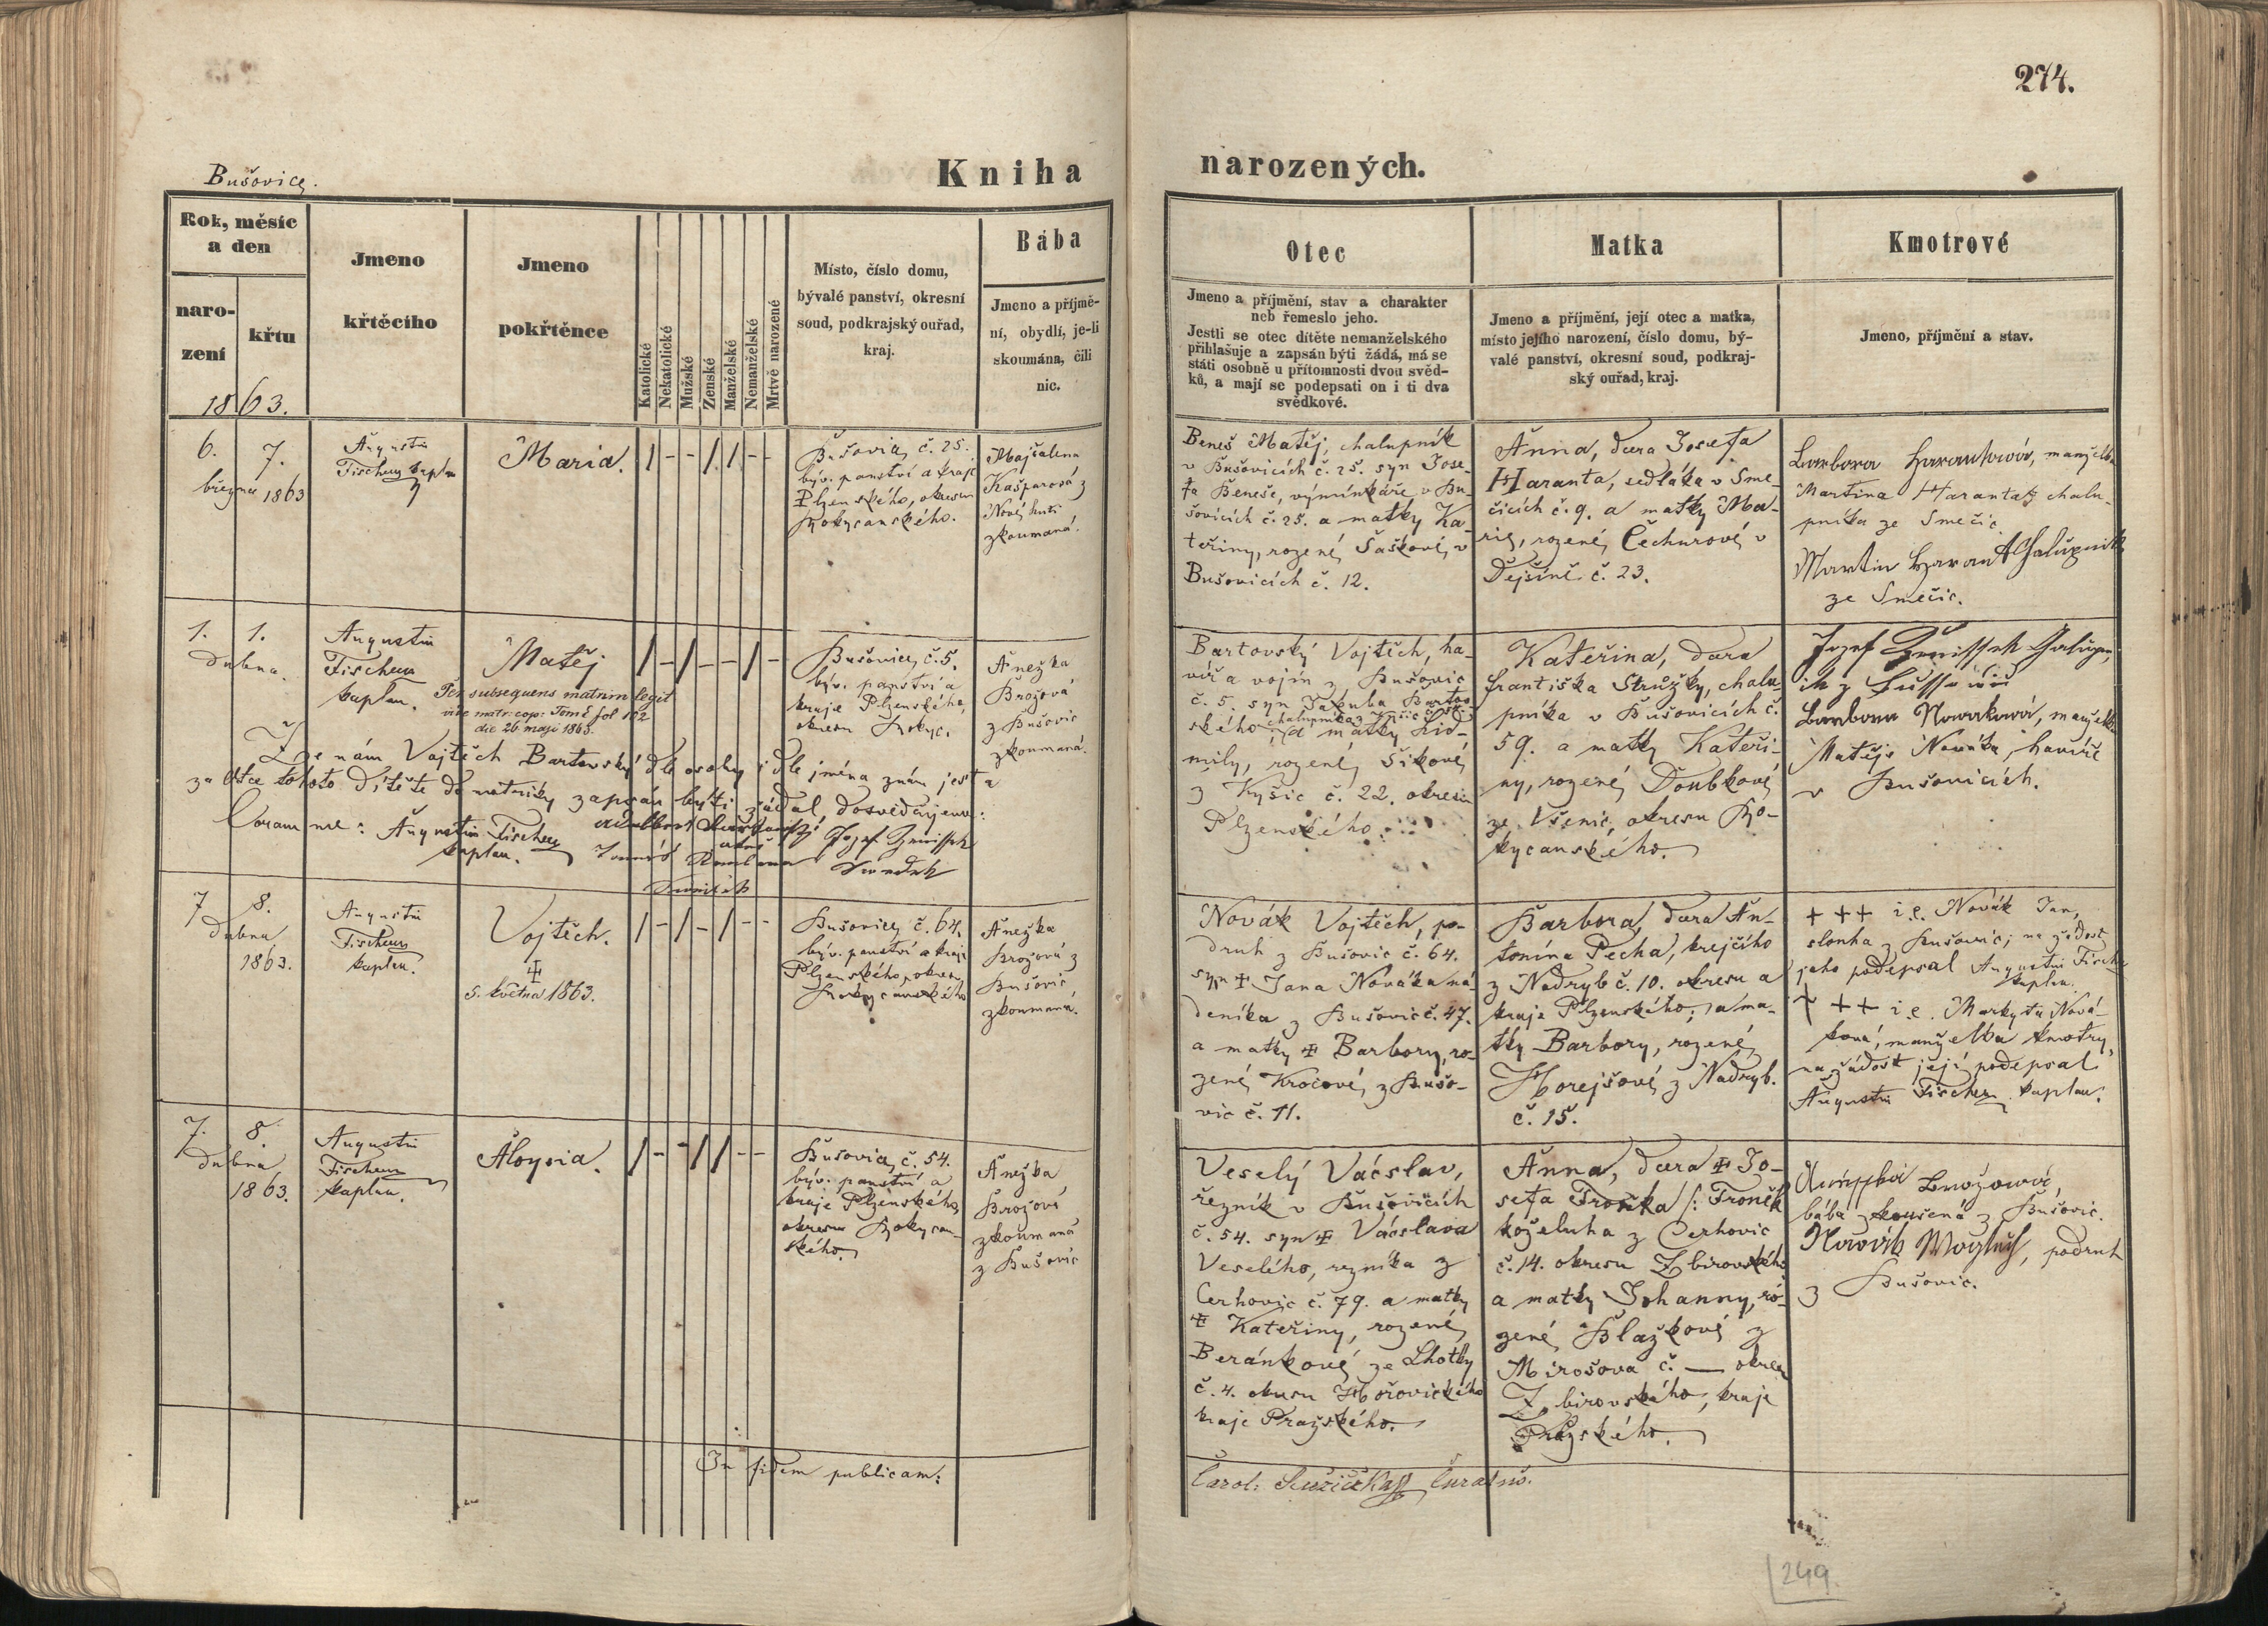 274.
Bušovice.
Kniha
narozených.
Rok, měsíc
a den
naro-
zení
křtu
1863.
Jmeno
křtěcího
Jmeno
pokřtěnce
Katolické
Nekatolické
Mužské
Zenské
Manželské
Nemanželské
Mrtvě narozené
Místo, číslo domu,
bývalé panství, okresní
soud, podkrajský ouřad,
kraj.
Bába
Jmeno a příjmě-
ní, obydlí, je-li
skoumána, čili
nic.
Otec
Jmeno a příjmění, stav a charakter
neb řemeslo jeho.
Jestli se otec dítěte nemanželského
přihlašuje a zapsán býti žádá, má se
státi osobně u přítomnosti dvou svěd-
ků, a mají se podepsati on i ti dva
svědkové.
Matka
Jmeno a příjmění, její otec a matka,
místo jejího narození, číslo domu, bý-
valé panství, okresní soud, podkraj-
ský ouřad, kraj.
Kmotrové
Jmeno, příjmění a stav.
6. 7.
března 1863
Augustin
Fischer kaplan
Maria.
Bušovice, č. 25.
býv. panství a kraje
Plzenského, okresu
Rokycanského.
Majdalena
Kašparová z
Nové huti
zkoumaná.
Beneš Matěj, chalupník
v Bušovicích č. 25. syn Jose-
fa Beneše, výminkáře v Bu-
šovicích č. 25. a matky Ka-
teřiny, rozené Šaškové, v
Bušovicích č. 12.
Anna, dcera Josefa
Haranta, sedláka v Sme-
čicích č. 9. a matky Ma-
rie, rozené Čechurové v
Dejšině č. 23.
Barbora Harantová, manželka
Martina Haranta, chalu-
pníka ze Smečic
Martin Harant Chalupnik
ze Smečic.
1. 1.
dubna.
Augustin
Fischer
kaplan.
Matěj
Per subsequens matrim legit
vide matr. cop: Tom E fol 102
die 26 maji 1863.
Bušovice, č. 5.
býv. panství a
kraje Plzenského,
okresu Rokyc.
Anežka
Brožová
z Bušovic
zkoumaná.
Že nám Vojtěch Bartovský dle osoby i dle jména znám jest a
za otce tohoto dítěte do matriky zapsán býti žádal, dosvědčujeme:
Coram me: Augustin Fischer
kaplan.
Bartovský Vojtěch, ha-
víř a vojín z Bušovic
č. 5. syn Jakuba Bartov-
ského chalupníka z Kyšic a matky Lid-
mily, rozené Šikové
z Kyšic č. 22. okresu
Plzenského.
Kateřina, dcera
Františka Strůžky, chalu-
pníka v Bušovicích č.
59. a matky Kateři-
ny, rozené Doubkové
ze Všenic, okresu Ro-
kycanského.
Barbora Nowaková, manželka
Matěje Nováka, havíře
v Bušovicích.
7 8.
dubna
1863.
Augustin
Fischer
kaplan.
Vojtěch.
5. května 1863.
Bušovice, č. 64.
býv. panství a kraje
Plzenského, okresu
Rokycanského
Anežka
Brožová z
Bušovic
zkoumaná.
Novák Vojtěch, po-
druh z Bušovic č. 64.
syn ‡ Jana Nováka ná-
deníka z Bušovic č. 47.
a matky ‡ Barbory, ro-
zené Krocové, z Bušo-
vic č. 11.
Barbora, dcera An-
tonína Pecha, krejčího
z Nadryb č. 10. okresu a
kraje Plzenského, a ma-
tky Barbory, rozené
Horejšové z Nadryb.
č. 15.
+++ i. e. Novák Jan,
slouha z Bušovic; na žádost
jeho podepsal Augustin Fischer
kaplan.
+++ i. e. Markyta Nová-
ková, manželka kmotry,
na žádost její podepsal
Augustin Fischer kaplan.
7. 8.
dubna
1863.
Augustin
Fischer
kaplan.
Aloysia.
Bušovice, č. 54.
býv. panství a
kraje Plzenského,
okresu Rokycan-
ského
Anežka
Brožová
zkoumaná
z Bušovic
Veselý Václav,
řezník v Bušovicích
č. 54. syn ‡ Václava
Veselého, řezníka z
Cerhovic č. 79. a matky
‡ Kateřiny, rozené
Beránkové, ze Lhotky
č. 4. okresu Hořovického
kraje Pražského.
Anna, dcera ‡ Jo-
sefa Troňka /: Troněk
koželuha z Cerhovic
č. 14. okresu Zbirovského
a matky Johanny, ro-
zené Blažkové z
Mirošova č. — okresu
Zbirovského, kraje
Pražského.
Brožowá,
bába zkoušená z Bušovic.
Nowák Wogtěch, podruh
z Bušovic.
In fidem publicam:
Carol: Curatus.
249